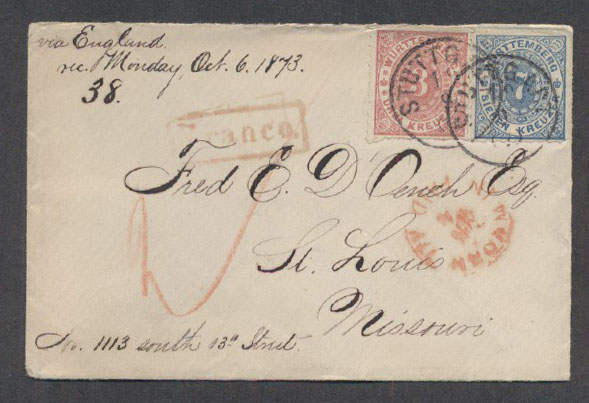 via England.
rec. Monday Oct. 6. 1873.
38.
WÜRTTEMBERG
3
DREI KREUZER
WÜRTTEMBERG
7
SIEBEN KREUZER
STUTTG
Franco.
Fred E. D'Oench Esq.
St. Louis
Missouri
No. 1113 south 13th Street.